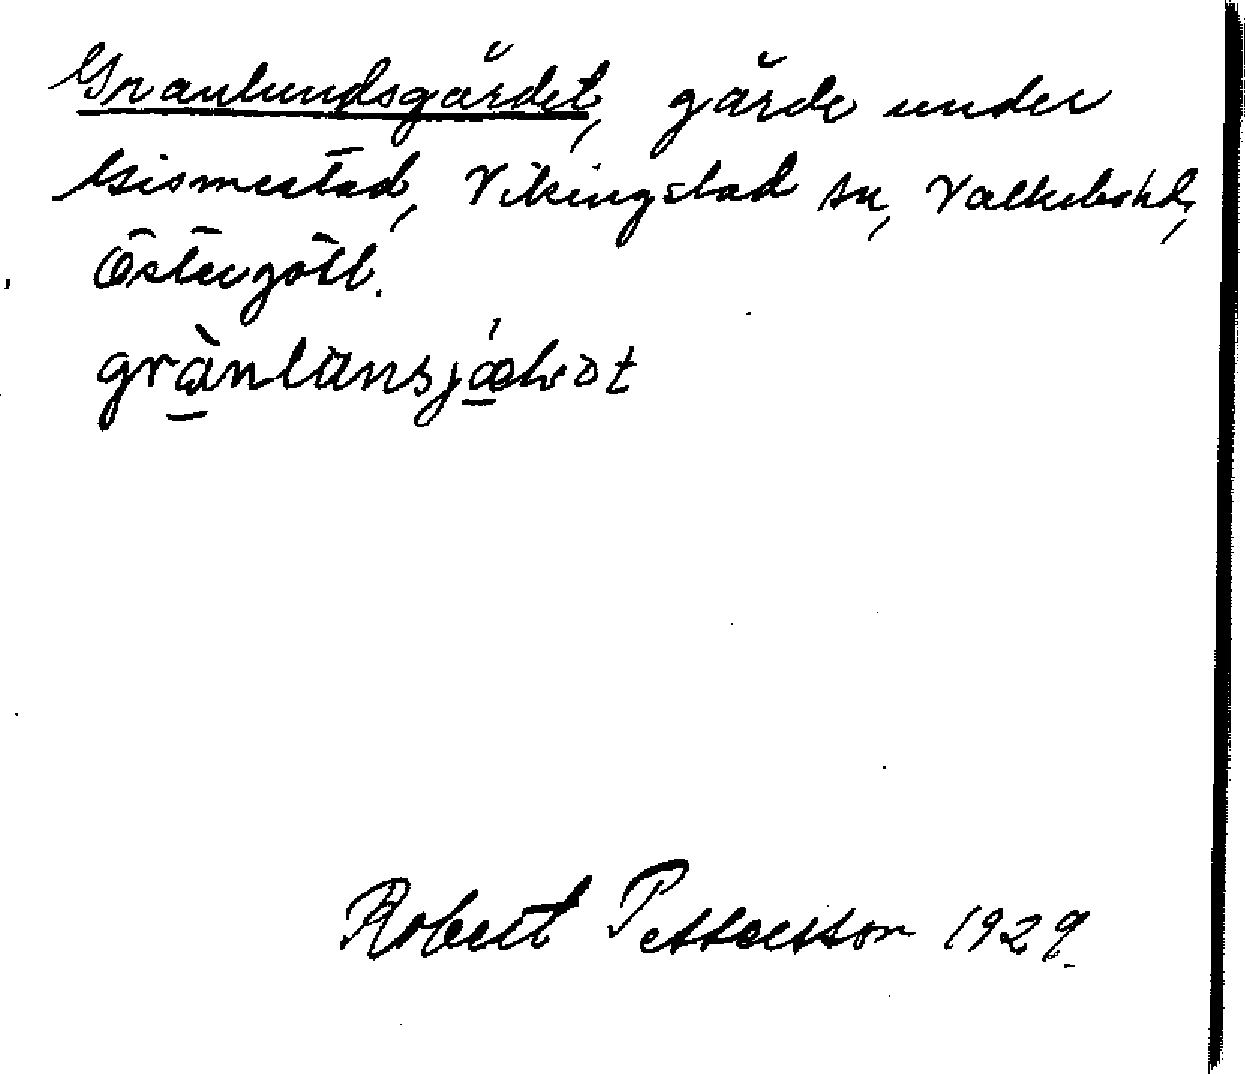 Granlundsgärdet, gärde under
Gismestad, Vikingstad sn, Valkebo hd,
Östergötl.
grànlunsjáæḷət
Robert Pettersson 1929.